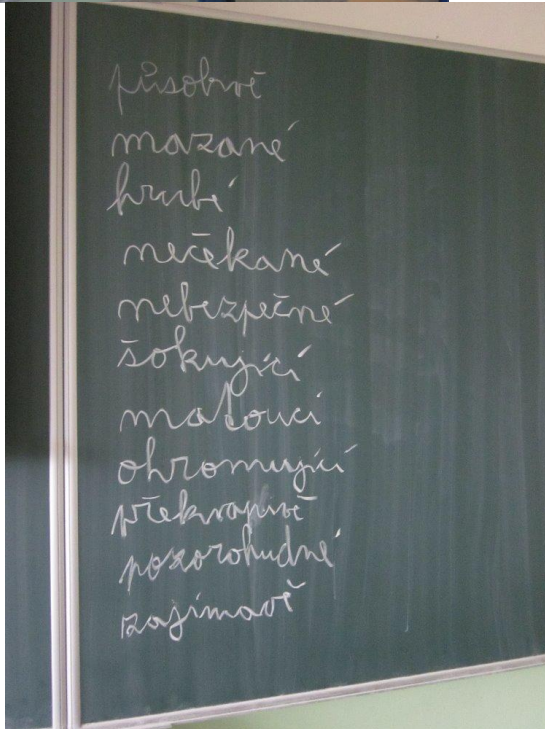 působivě
mazané
hrubé
nečekané
nebezpečné
šokující
matoucí
ohromující
překvapivě
pozorohudné
zajímavě